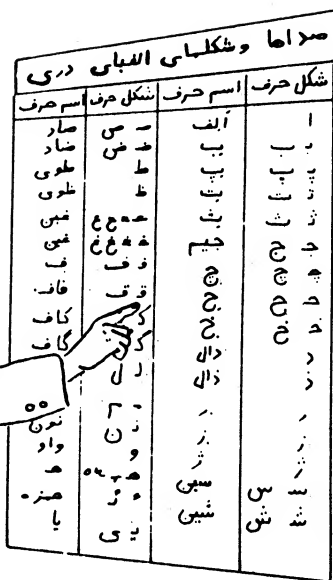 صداها وشکلهای الفبای دری
شکل حرف اسم حرف شکل حرف اسم حرف
ا الف صـ ص صاد
بـ ب ب ضـ ض ضاد
پـ پ پ ط طوی
تـ ت ت ظ ظوی
ثـ ث ث عـ ـعـ ـع ع عین
جـ ج جیم غـ ـغـ ـغ غ غین
چـ چ چ فـ ف ف
حـ ح ح قـ ق قاف
خـ خ خ کـ کاف
د دال گـ گاف
ذ ذال لـ ل
ر ر مـ م
ز ز نـ ن نون
ژ ژ و واو
سـ س سین هـ ـهـ ه هـ
شـ ش شین ء ئـ همزه
یـ ی یا